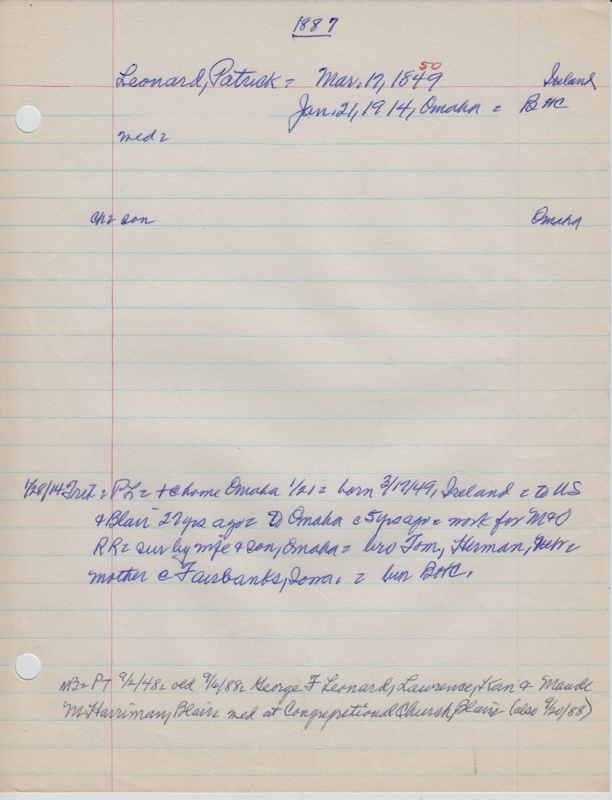 1887
50
Leonard, Patrick = Mar. 17, 1849 Ireland
Jan. 21, 1914, Omaha = BHC
med =
ch = son Omaha
1/28/14 Trib = PL = + @ home Omaha 1/21 = born 3/17/49, Ireland = to US
& Blair 27 yrs ago = to Omaha c 5 yrs ago = work for M&O
RR = sur by wife & son, Omaha = bro Tom, Herman, Nebr =
mother @ Fairbanks, Iowa. = bur BHC.
9/2/48 = old 9/6/88 = George F Leonard, Lawrence, Kan & Maude
M Harriman, Blair = med at Congregational Church, Blair (also 9/20/88)